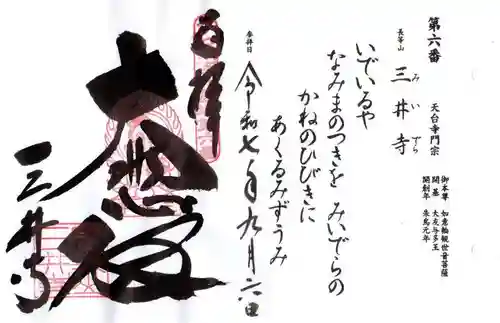 第六番
天台寺門宗
御本尊 如意輪観世音菩薩
開基 大友与多王
開創年 朱鳥元年
長等山
三井寺
みいでら
いでいるや
なみまのつきを みいでらの
かねのひびきに
あくるみずうみ
参拝日
令和七年九月六日
奉拝
大悲殿
三井寺